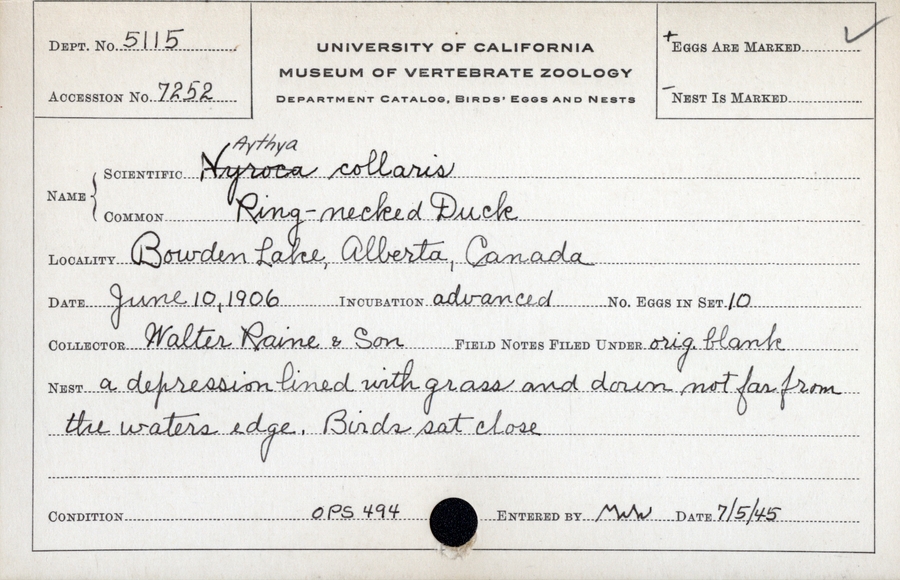 DEPT. No. 5115
ACCESSION No. 7252
UNIVERSITY OF CALIFORNIA
MUSEUM OF VERTEBRATE ZOOLOGY
DEPARTMENT CATALOG, BIRDS' EGGS AND NESTS
+ EGGS ARE MARKED ✓
- NEST IS MARKED
Aythya
NAME { SCIENTIFIC Nyroca collaris
COMMON Ring-necked Duck
LOCALITY Bowden Lake, Alberta, Canada
DATE June 10, 1906 INCUBATION advanced No. EGGS IN SET 10
COLLECTOR Walter Raine & Son FIELD NOTES FILED UNDER orig blank
NEST a depression lined with grass and down not far from
the waters edge. Birds sat close
CONDITION OPS 494 ENTERED BY DATE 7/5/45